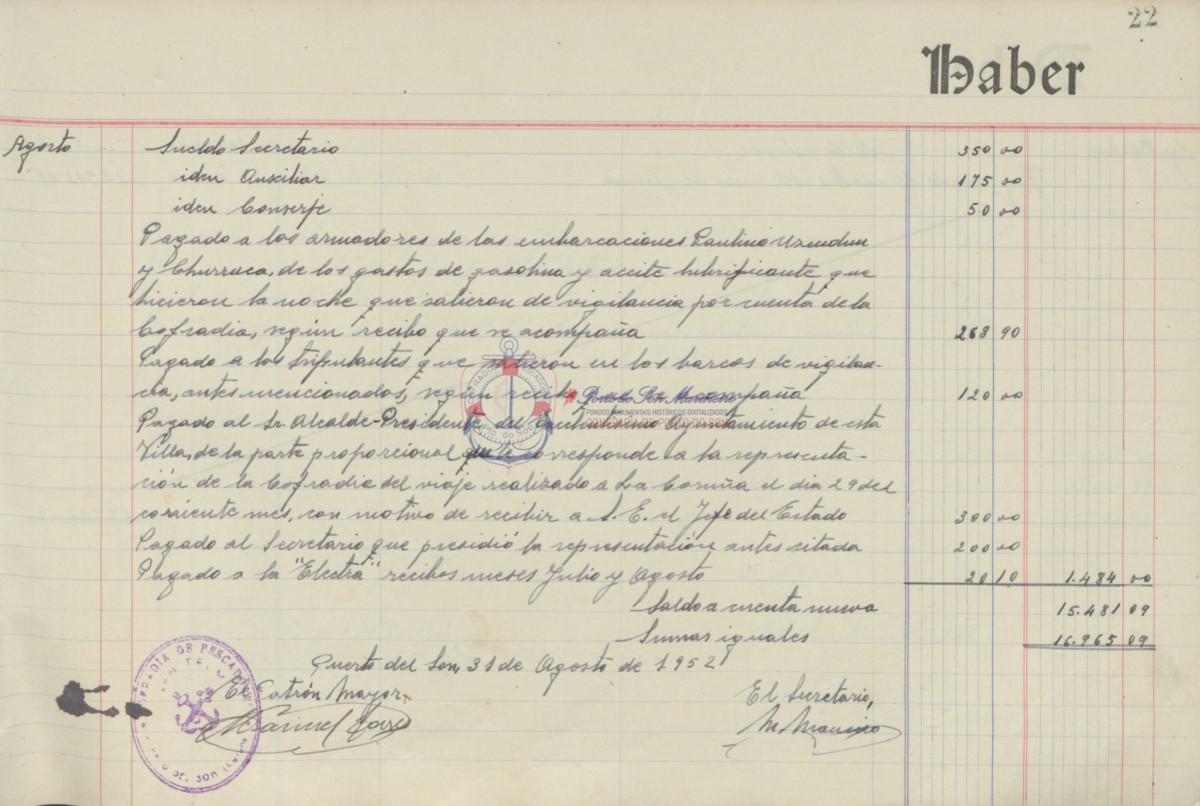 22
Haber
Agosto Sueldo Secretario 350 00
iden Auxiliar 175 00
iden Conserje 50 00
Pagado a los armadores de las embarcaciones Paulino Uzcudun
y Churruca, de los gastos de gasolina y aceite lubrificante que
hicieron la noche que salieron de vigilancia por cuenta de la
Cofradia, según recibo que se acompaña 268 90
Pagado a los tripulantes que salieron en los barcos de vigilan-
cia, antes mencionados, según recibo que se acompaña 120 00
Pagado al Sr. Alcalde-Presidente del Ayuntamiento de esta
Villa, de la parte proporcional que le corresponde a la representa-
ción de la Cofradia del viaje realizado a La Coruña el dia 29 del
corriente mes, con motivo de recibir a S. E. el Jefe del Estado 300 00
Pagado al Secretario que presidió la representación antes citada 200 00
Pagado a la "Electra" recibos meses Julio y Agosto 20 10 1.484 00
Saldo a cuenta nueva 15.481 09
Sumas iguales 16.965 09
Puerto del Son, 31 de Agosto de 1952
El Patrón Mayor. El Secretario,
Manuel
COFRADIA DE PESCADORES
Porto do Son Marineiro
FONDOS DOCUMENTAIS HISTÓRICOS DIGITALIZADOS
CONFRARÍA DE PORTO DO SON